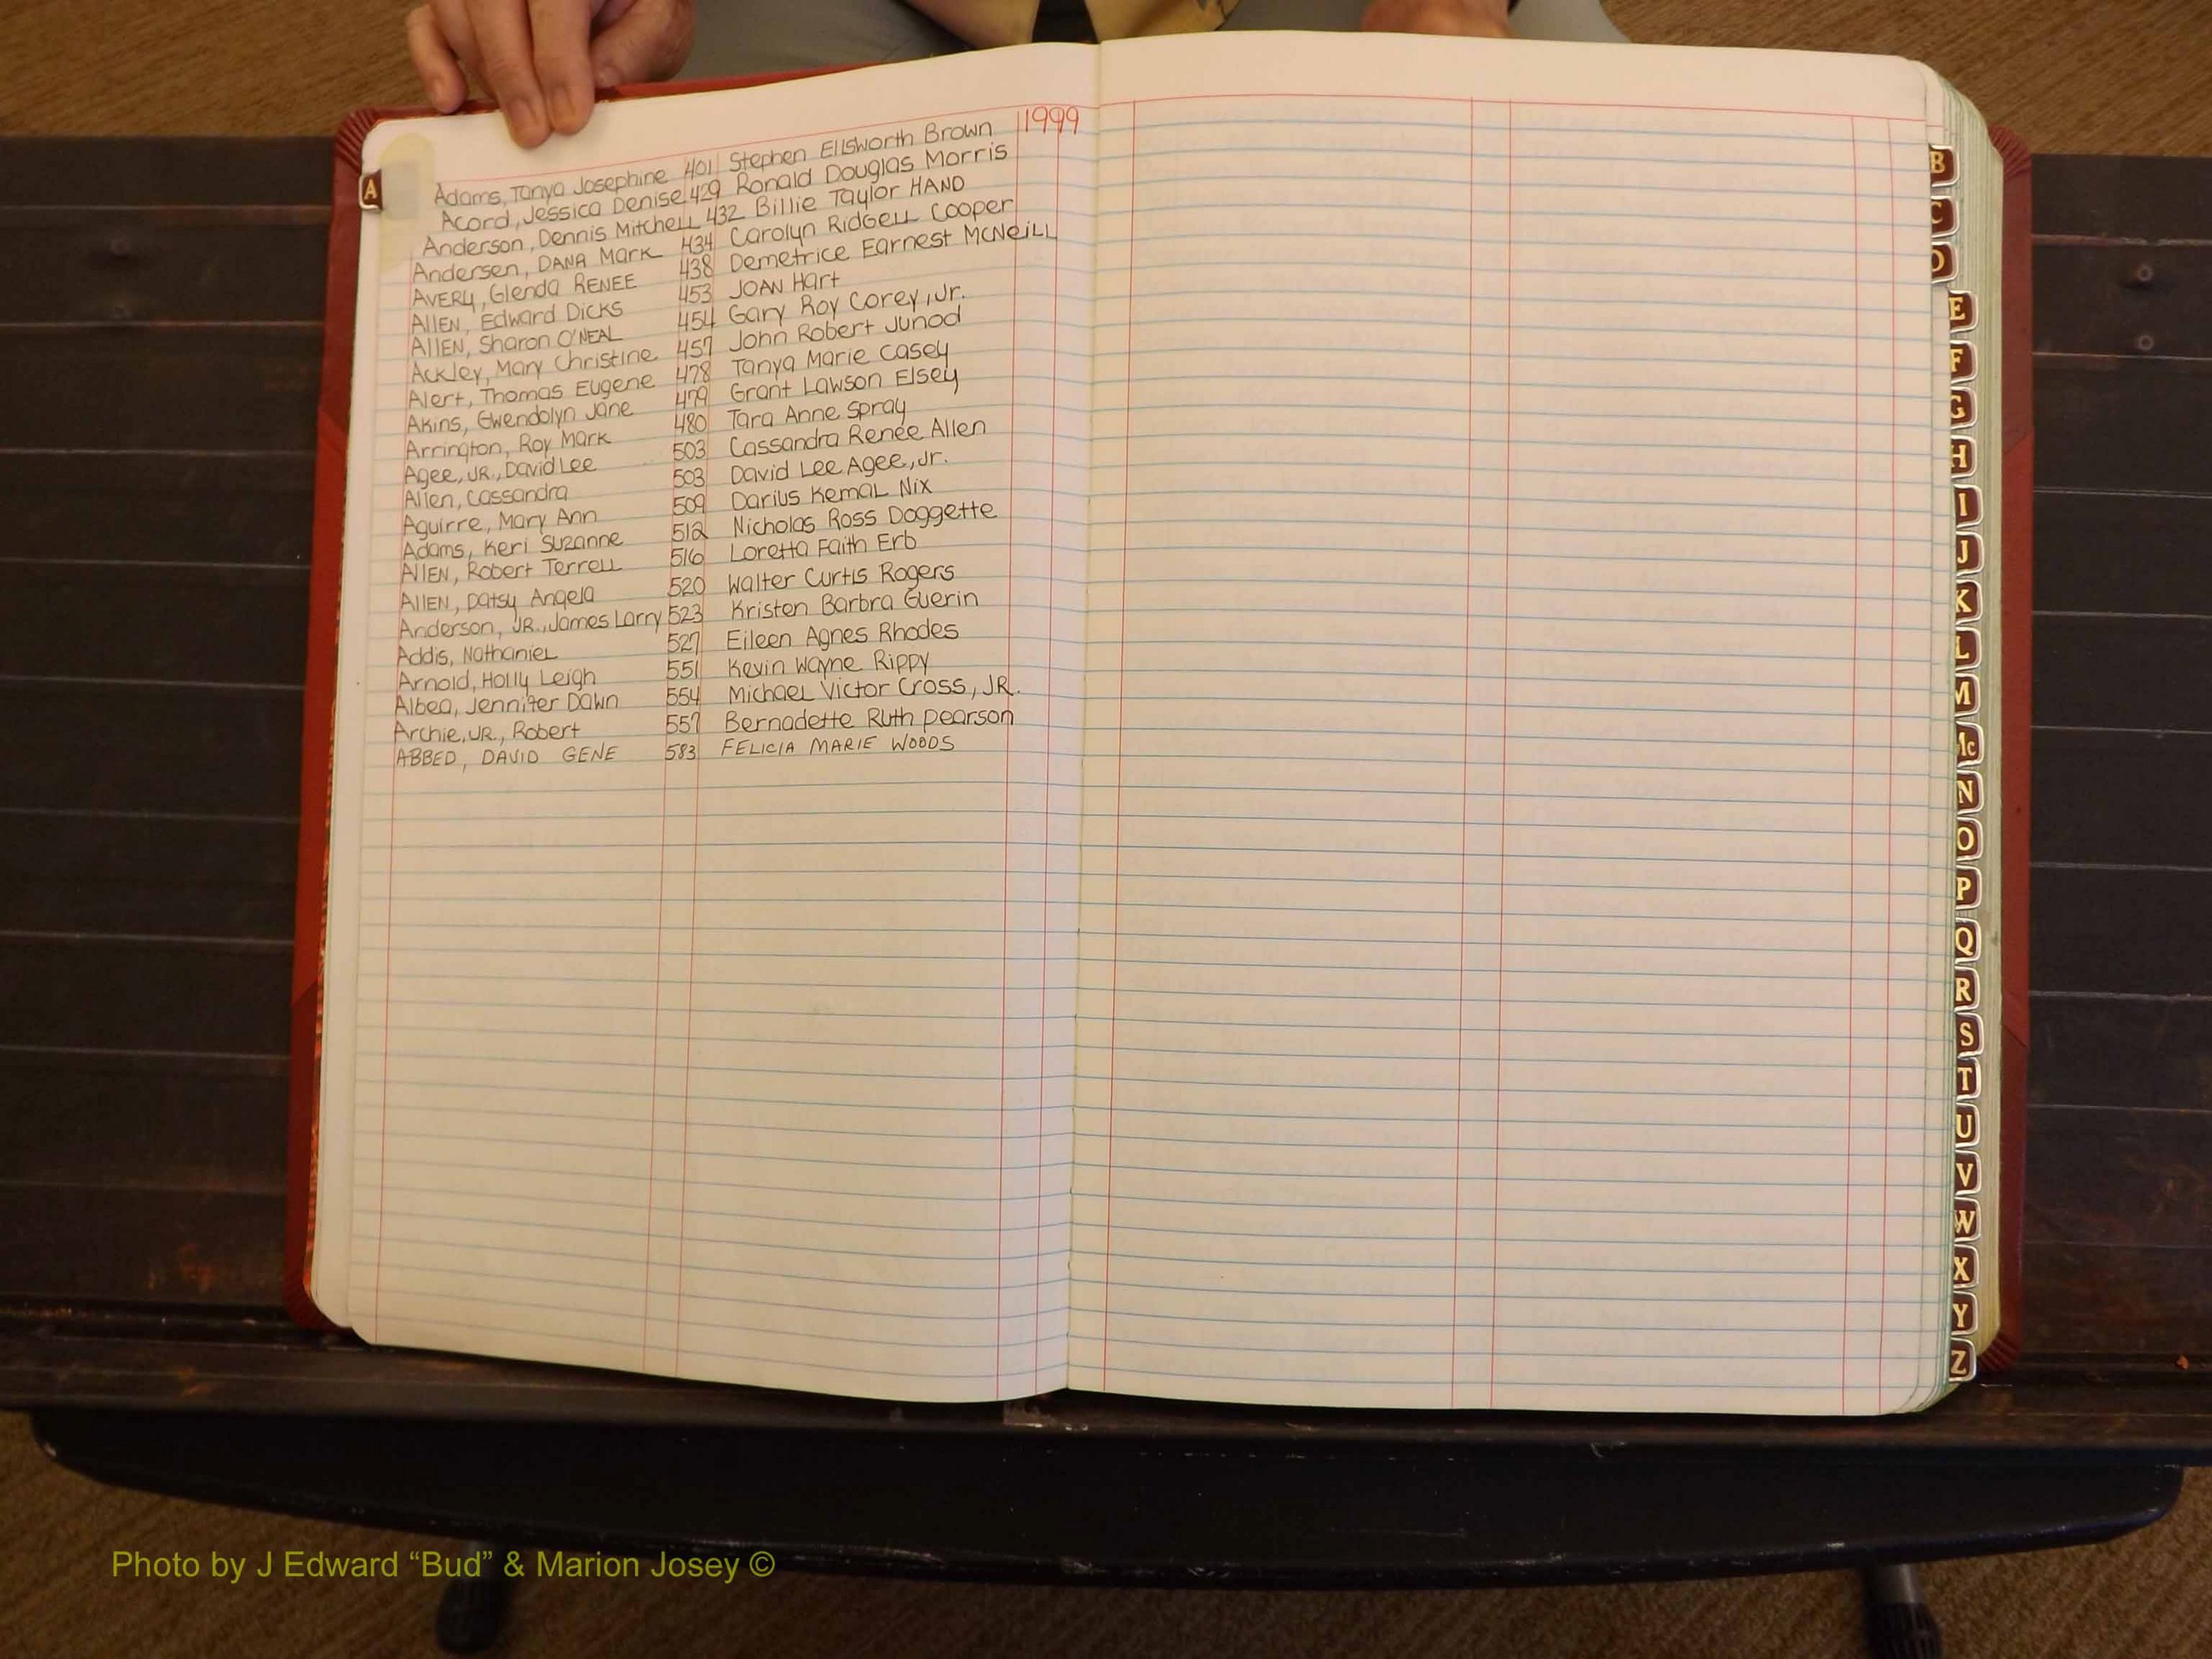 1999
A
Adams, Tanya Josephine 401 Stephen Ellsworth Brown
Acord, Jessica Denise 429 Ronald Douglas Morris
Anderson, Dennis Mitchell 432 Billie Taylor HAND
Andersen, DANA Mark 434 Carolyn Ridgell Cooper
AVERY, Glenda RENEE 438 Demetrice Earnest McNeiLL
AllEN, Edward Dicks 453 JOAN Hart
AllEN, Sharon O'NEAL 454 Gary Roy Corey, Jr.
Ackley, Mary Christine 457 John Robert Junod
Alert, Thomas Eugene 478 Tanya Marie Casey
Akins, Gwendolyn Jane 479 Grant Lawson Elsey
Arrington, Roy Mark 480 Tara Anne Spray
Agee, JR., David Lee 503 Cassandra Renee Allen
Allen, Cassandra 503 David Lee Agee, Jr.
Aguirre, Mary Ann 509 Darius Kemal Nix
Adams, Keri Suzanne 512 Nicholas Ross Doggette
AllEN, Robert Terrell 516 Loretta Faith Erb
AllEN, Patsy Angela 520 Walter Curtis Rogers
Anderson, JR., James Larry 523 Kristen Barbra Guerin
Addis, Nathaniel 527 Eileen Agnes Rhodes
Arnold, Holly Leigh 551 Kevin Wayne Rippy
Albea, Jennifer Dawn 554 Michael Victor Cross, JR.
Archie, JR., Robert 557 Bernadette Ruth Pearson
ABBED, DAVID GENE 583 FELICIA MARIE WOODS
B
C
D
E
F
G
H
I
J
K
L
M
Mc
N
O
P
Q
R
S
T
U
V
W
X
Y
Z
Photo by J Edward “Bud” & Marion Josey ©